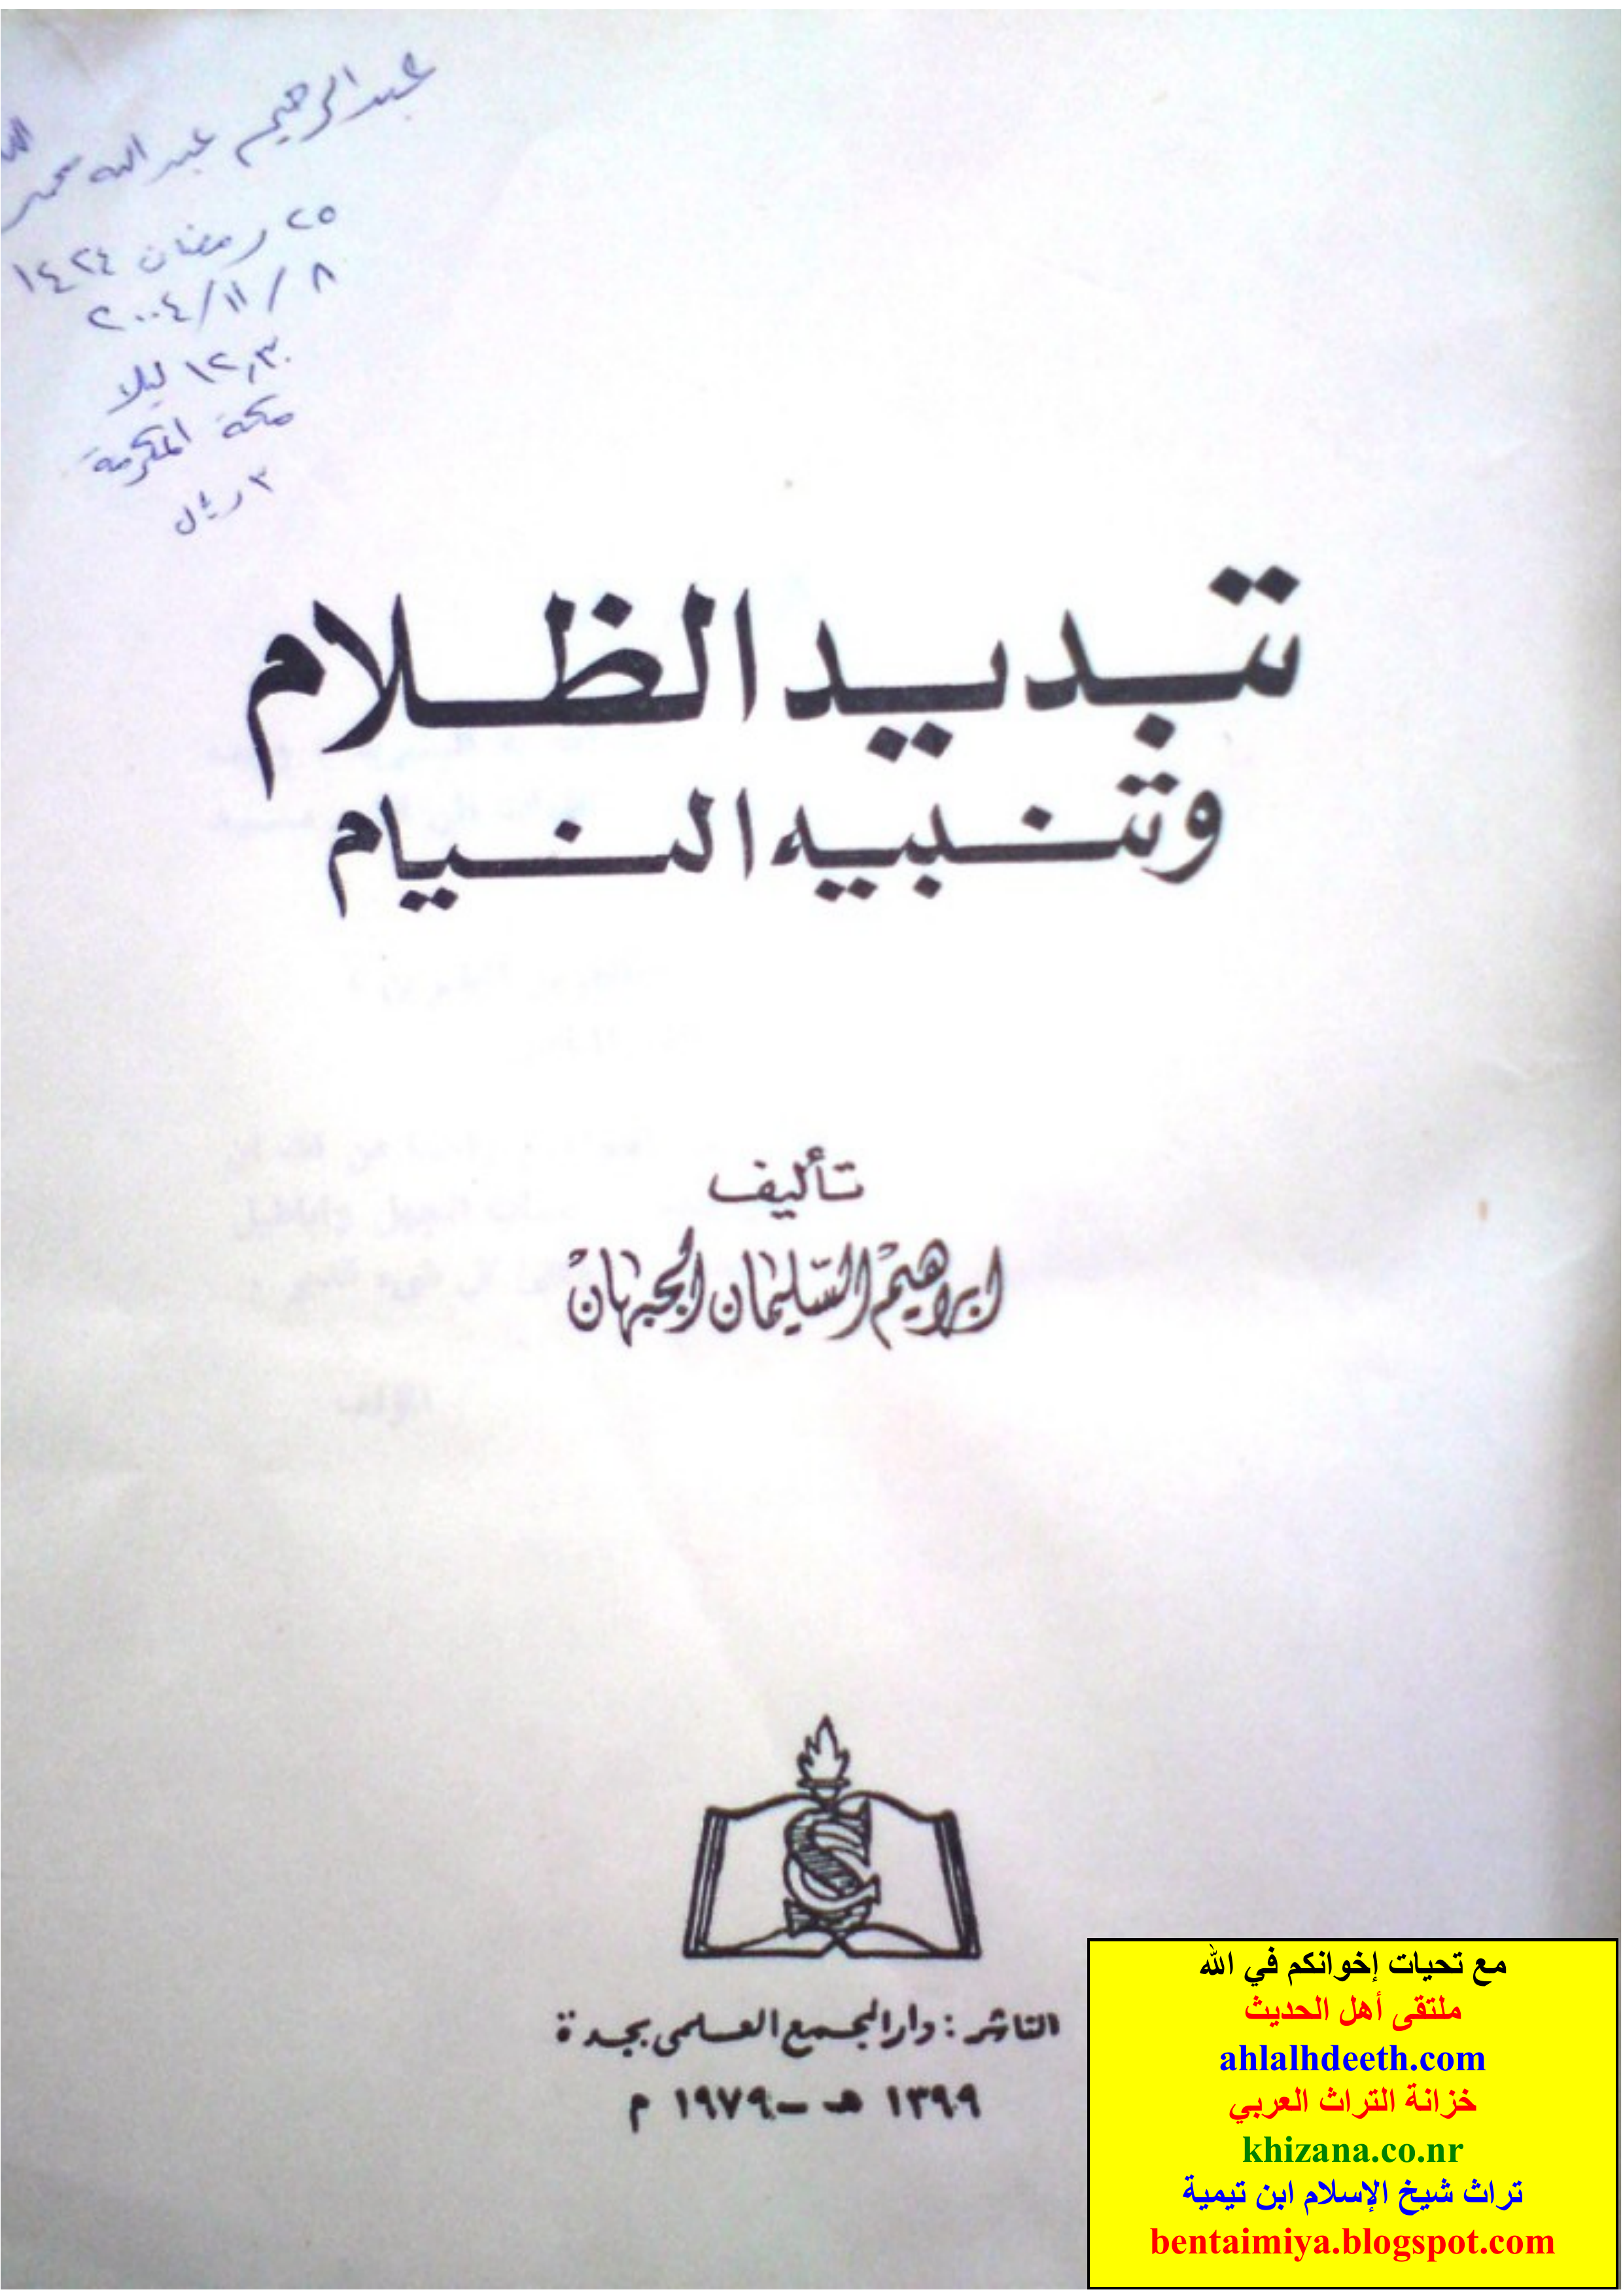 عبدالرحيم عبدالله محمد
٢٥ رمضان ١٤٢٤
٨ / ١١ / ٢٠٠٤
١٢,٣٠ ليلا
مكة المكرمة
٣ ريال
تبديد الظلام
وتنبيه النيام
تأليف
ابراهيم السليمان الجبهان
الناشر : دار المجمع العلمى بجدة
١٣٩٩ هـ - ١٩٧٩ م
مع تحيات إخوانكم في الله
ملتقى أهل الحديث
ahlalhdeeth.com
خزانة التراث العربي
khizana.co.nr
تراث شيخ الإسلام ابن تيمية
bentaimiya.blogspot.com